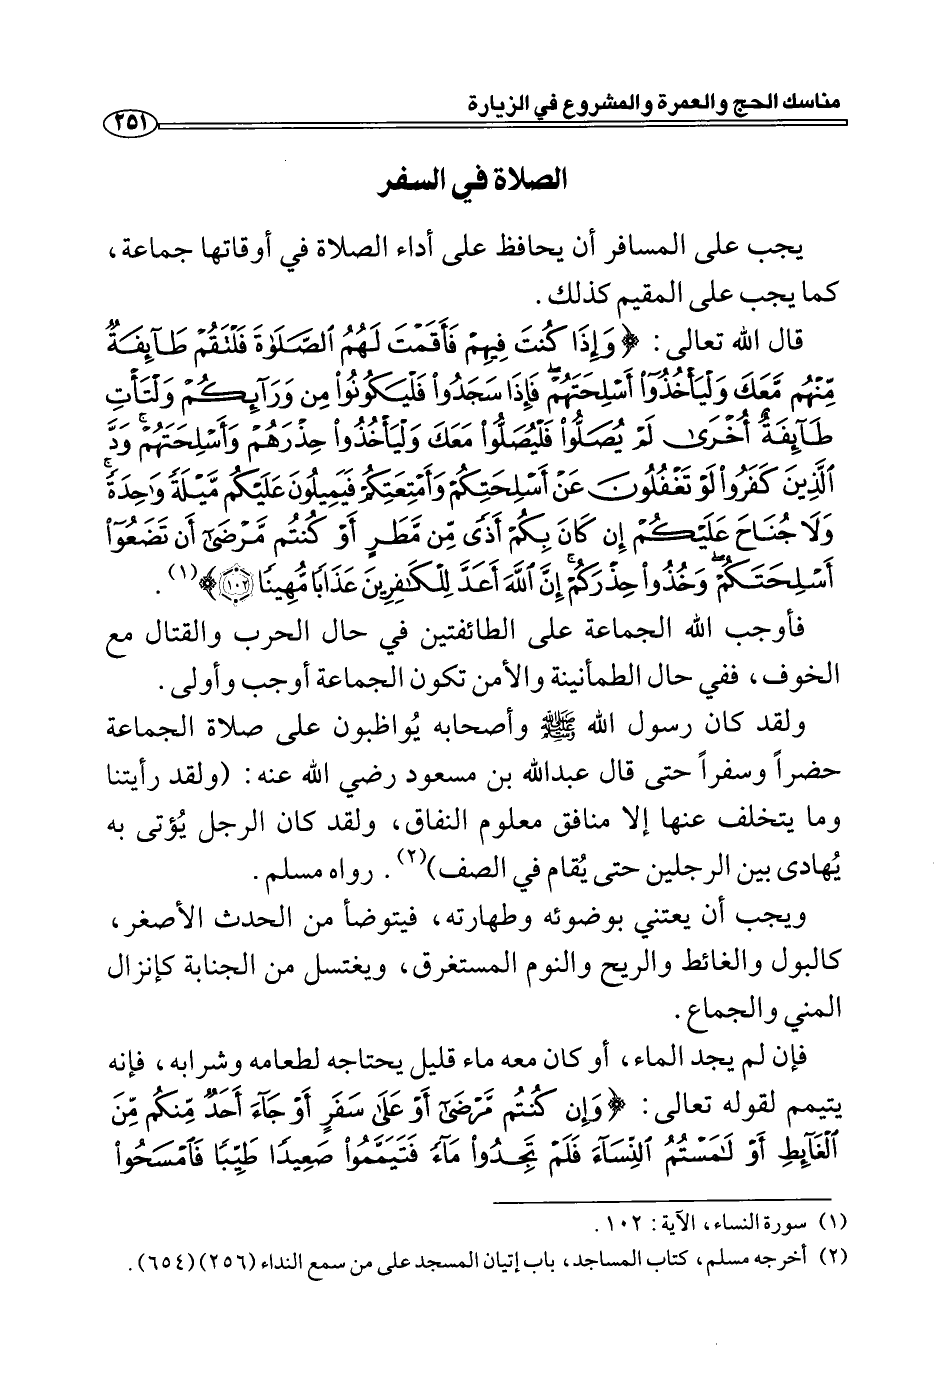 مناسك الحج والعمرة والمشروع في الزيارة
٢٥١
الصلاة في السفر
يجب على المسافر أن يحافظ على أداء الصلاة في أوقاتها جماعة،
كما يجب على المقيم كذلك.
قال الله تعالى: ﴿وَإِذَا كُنتَ فِيهِمْ فَأَقَمْتَ لَهُمُ ٱلصَّلَوٰةَ فَلْتَقُمْ طَآئِفَةٌ
مِّنْهُم مَّعَكَ وَلْيَأْخُذُوٓا۟ أَسْلِحَتَهُمْۖ فَإِذَا سَجَدُوا۟ فَلْيَكُونُوا۟ مِن وَرَآئِكُمْ وَلْتَأْتِ
طَآئِفَةٌ أُخْرَىٰ لَمْ يُصَلُّوا۟ فَلْيُصَلُّوا۟ مَعَكَ وَلْيَأْخُذُوا۟ حِذْرَهُمْ وَأَسْلِحَتَهُمْۗ وَدَّ
ٱلَّذِينَ كَفَرُوا۟ لَوْ تَغْفُلُونَ عَنْ أَسْلِحَتِكُمْ وَأَمْتِعَتِكُمْ فَيَمِيلُونَ عَلَيْكُم مَّيْلَةً وَٰحِدَةًۚ
وَلَا جُنَاحَ عَلَيْكُمْ إِن كَانَ بِكُمْ أَذًى مِّن مَّطَرٍ أَوْ كُنتُم مَّرْضَىٰٓ أَن تَضَعُوٓا۟
أَسْلِحَتَكُمْۖ وَخُذُوا۟ حِذْرَكُمْۗ إِنَّ ٱللَّهَ أَعَدَّ لِلْكَٰفِرِينَ عَذَابًا مُّهِينًا ١٠٢﴾(١).
فأوجب الله الجماعة على الطائفتين في حال الحرب والقتال مع
الخوف، ففي حال الطمأنينة والأمن تكون الجماعة أوجب وأولى.
ولقد كان رسول الله ﷺ وأصحابه يُواظبون على صلاة الجماعة
حضراً وسفراً حتى قال عبدالله بن مسعود رضي الله عنه: (ولقد رأيتنا
وما يتخلف عنها إلا منافق معلوم النفاق، ولقد كان الرجل يُؤتى به
يُهادى بين الرجلين حتى يُقام في الصف)(٢). رواه مسلم.
ويجب أن يعتني بوضوئه وطهارته، فيتوضأ من الحدث الأصغر،
كالبول والغائط والريح والنوم المستغرق، ويغتسل من الجنابة كإنزال
المني والجماع.
فإن لم يجد الماء، أو كان معه ماء قليل يحتاجه لطعامه وشرابه، فإنه
يتيمم لقوله تعالى: ﴿وَإِن كُنتُم مَّرْضَىٰٓ أَوْ عَلَىٰ سَفَرٍ أَوْ جَآءَ أَحَدٌ مِّنكُم مِّنَ
ٱلْغَآئِطِ أَوْ لَٰمَسْتُمُ ٱلنِّسَآءَ فَلَمْ تَجِدُوا۟ مَآءً فَتَيَمَّمُوا۟ صَعِيدًا طَيِّبًا فَٱمْسَحُوا۟
(١) سورة النساء، الآية: ١٠٢.
(٢) أخرجه مسلم، كتاب المساجد، باب إتيان المسجد على من سمع النداء (٢٥٦)(٦٥٤).